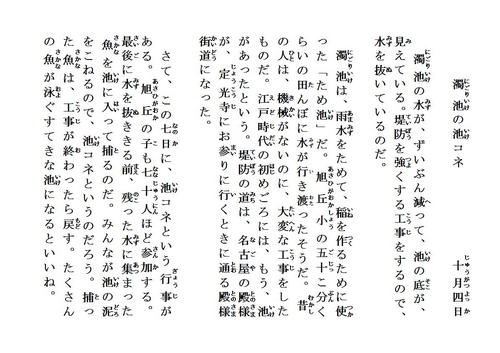 濁池の池コネ　十月四日
濁池の水が、ずいぶん減って、池の底が、
見えている。堤防を強くする工事をするので、
水を抜いているのだ。
濁池は、雨水をためて、稲を作るために使
った「ため池」だ。旭丘小の五十こ分く
らいの田んぼに水が行き渡ったそうだ。昔
の人は、機械がないのに、大変な工事をした
ものだ。江戸時代の初めごろには、もう、池
があったという。堤防の道は、名古屋の殿様
が、定光寺にお参りに行くときに通る殿様
街道になった。
さて、この七日に、池コネという行事が
ある。旭丘の子も七十人ほど参加する。
最後に水を抜ききる前、残った水に集まった
魚を池に入って捕るのだ。みんなが池の泥
をこねるので、池コネというのだろう。捕っ
た魚は、工事が終わったら戻す。たくさん
の魚が泳ぐすてきな池になるといいね。